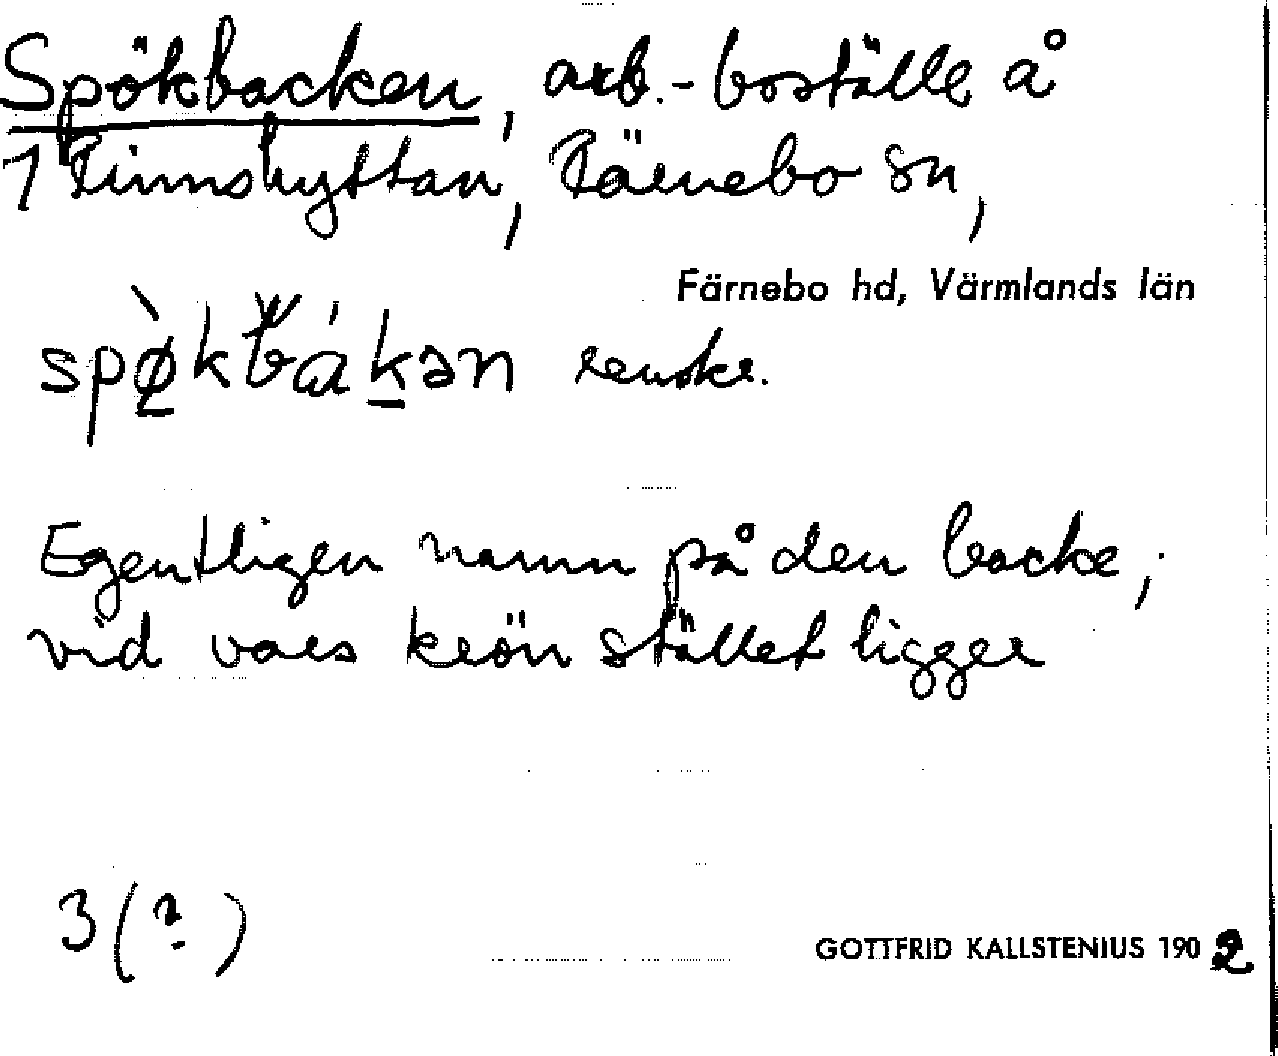 Spökbacken, arb.-boställe å
1 Finnshyttan, Färnebo sn,
Färnebo hd, Värmlands län
spø̀kbákən
Egentligen namn på den backe,
vid vars krön stället ligger
3 (?)
GOTTFRID KALLSTENIUS 1902